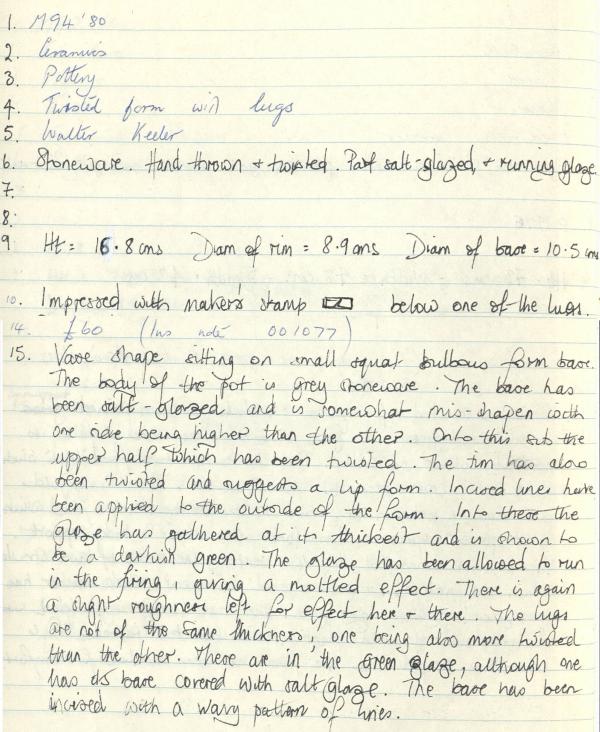 1. M94 '80
2. Ceramics
3. Pottery
4. Twisted form with lugs
5. Walter Keeler
6. Stoneware. Hand thrown + twisted. Part salt-glazed, + running glaze.
7.
8.
9 Ht = 16.8 cms Diam of rim = 8.9 cms Diam of base = 10.5 cms
10. Impressed with makers stamp below one of the lugs.
14. £60 (Ins note 001077)
15. Vase shape sitting on small squat bulbous form base.
The body of the pot is grey stoneware. The base has
been salt-glazed and is somewhat mis-shapen with
one side being higher than the other. Onto this sits the
upper half which has been twisted. The rim has also
been twisted and suggests a lip form. Incised lines have
been applied to the outside of the form. Into these the
glaze has gathered at its thickest and is shown to
be a darkish green. The glaze has been allowed to run
in the firing, giving a mottled effect. There is again
a slight roughness left for effect here + there. The lugs
are not of the same thickness, one being also more twisted
than the other. These are in the green glaze, although one
has its base covered with salt glaze. The base has been
incised with a wavy pattern of lines.